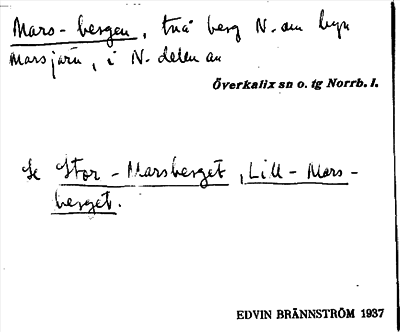 Mars-bergen, två berg N. om byn
Marsjärv, i N. delen av
Överkalix sn o. tg Norrb. l.
Se Stor-Marsberget, Lill-Mars-
berget.
EDVIN BRÄNNSTRÖM 1937